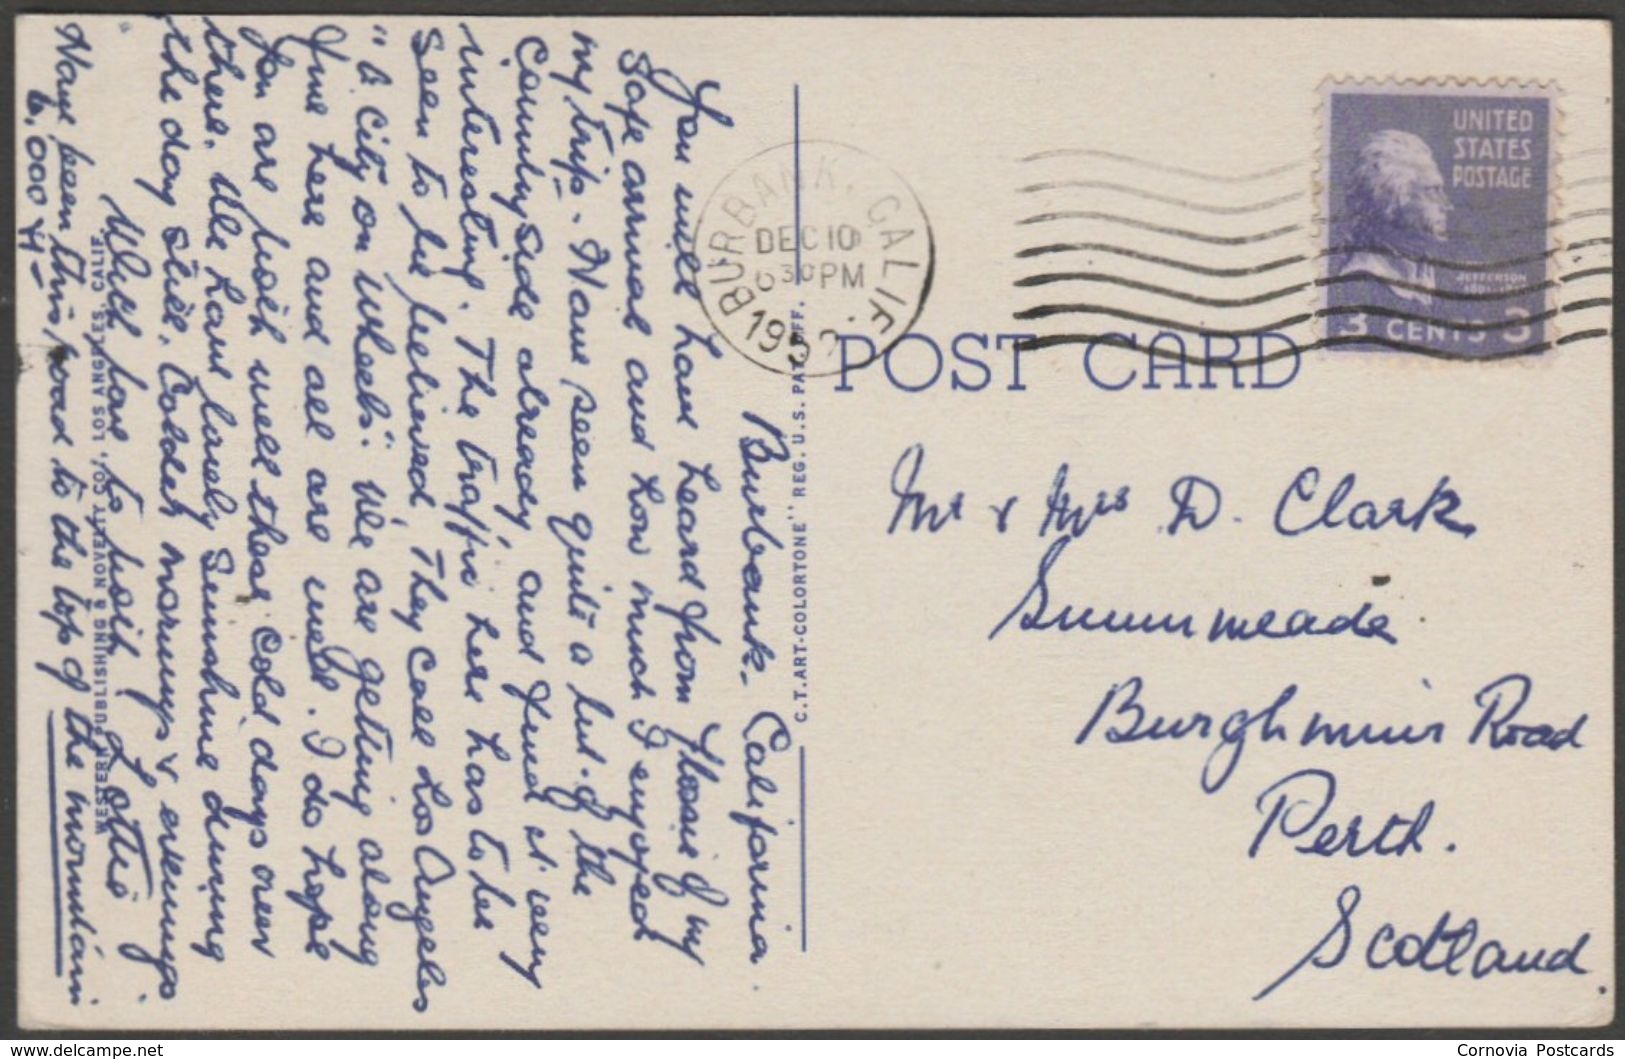 Burbank - California.
You will have heard from Flossie of my
safe arrival and how much I enjoyed
my trip. Have seen quite a bit of the
Countryside already, and find it very
interesting. The traffic here has to be
seen to be believed. They call Los Angeles
"A City on Wheels". We are getting along
fine here and all are well. I do hope
you are both well these cold days over
there. We have lovely sunshine during
the day still. Colder mornings & evenings
With love to both Lottie.
Have been this road to the top of the mountain
6,000 ft -
WESTERN PUBLISHING & NOVELTY CO., LOS ANGELES, CALIF.
C.T. ART-COLORTONE" REG. U.S. PAT. OFF.
BURBANK, CALIF.
DEC 10
630 PM
UNITED
STATES
POSTAGE
JEFFERSON
3 CENTS 3
POST CARD
Mr & Mrs D. Clark
Summeade
Burghmuir Road
Perth.
Scotland.
delcampe.net
Cornovia Postcards